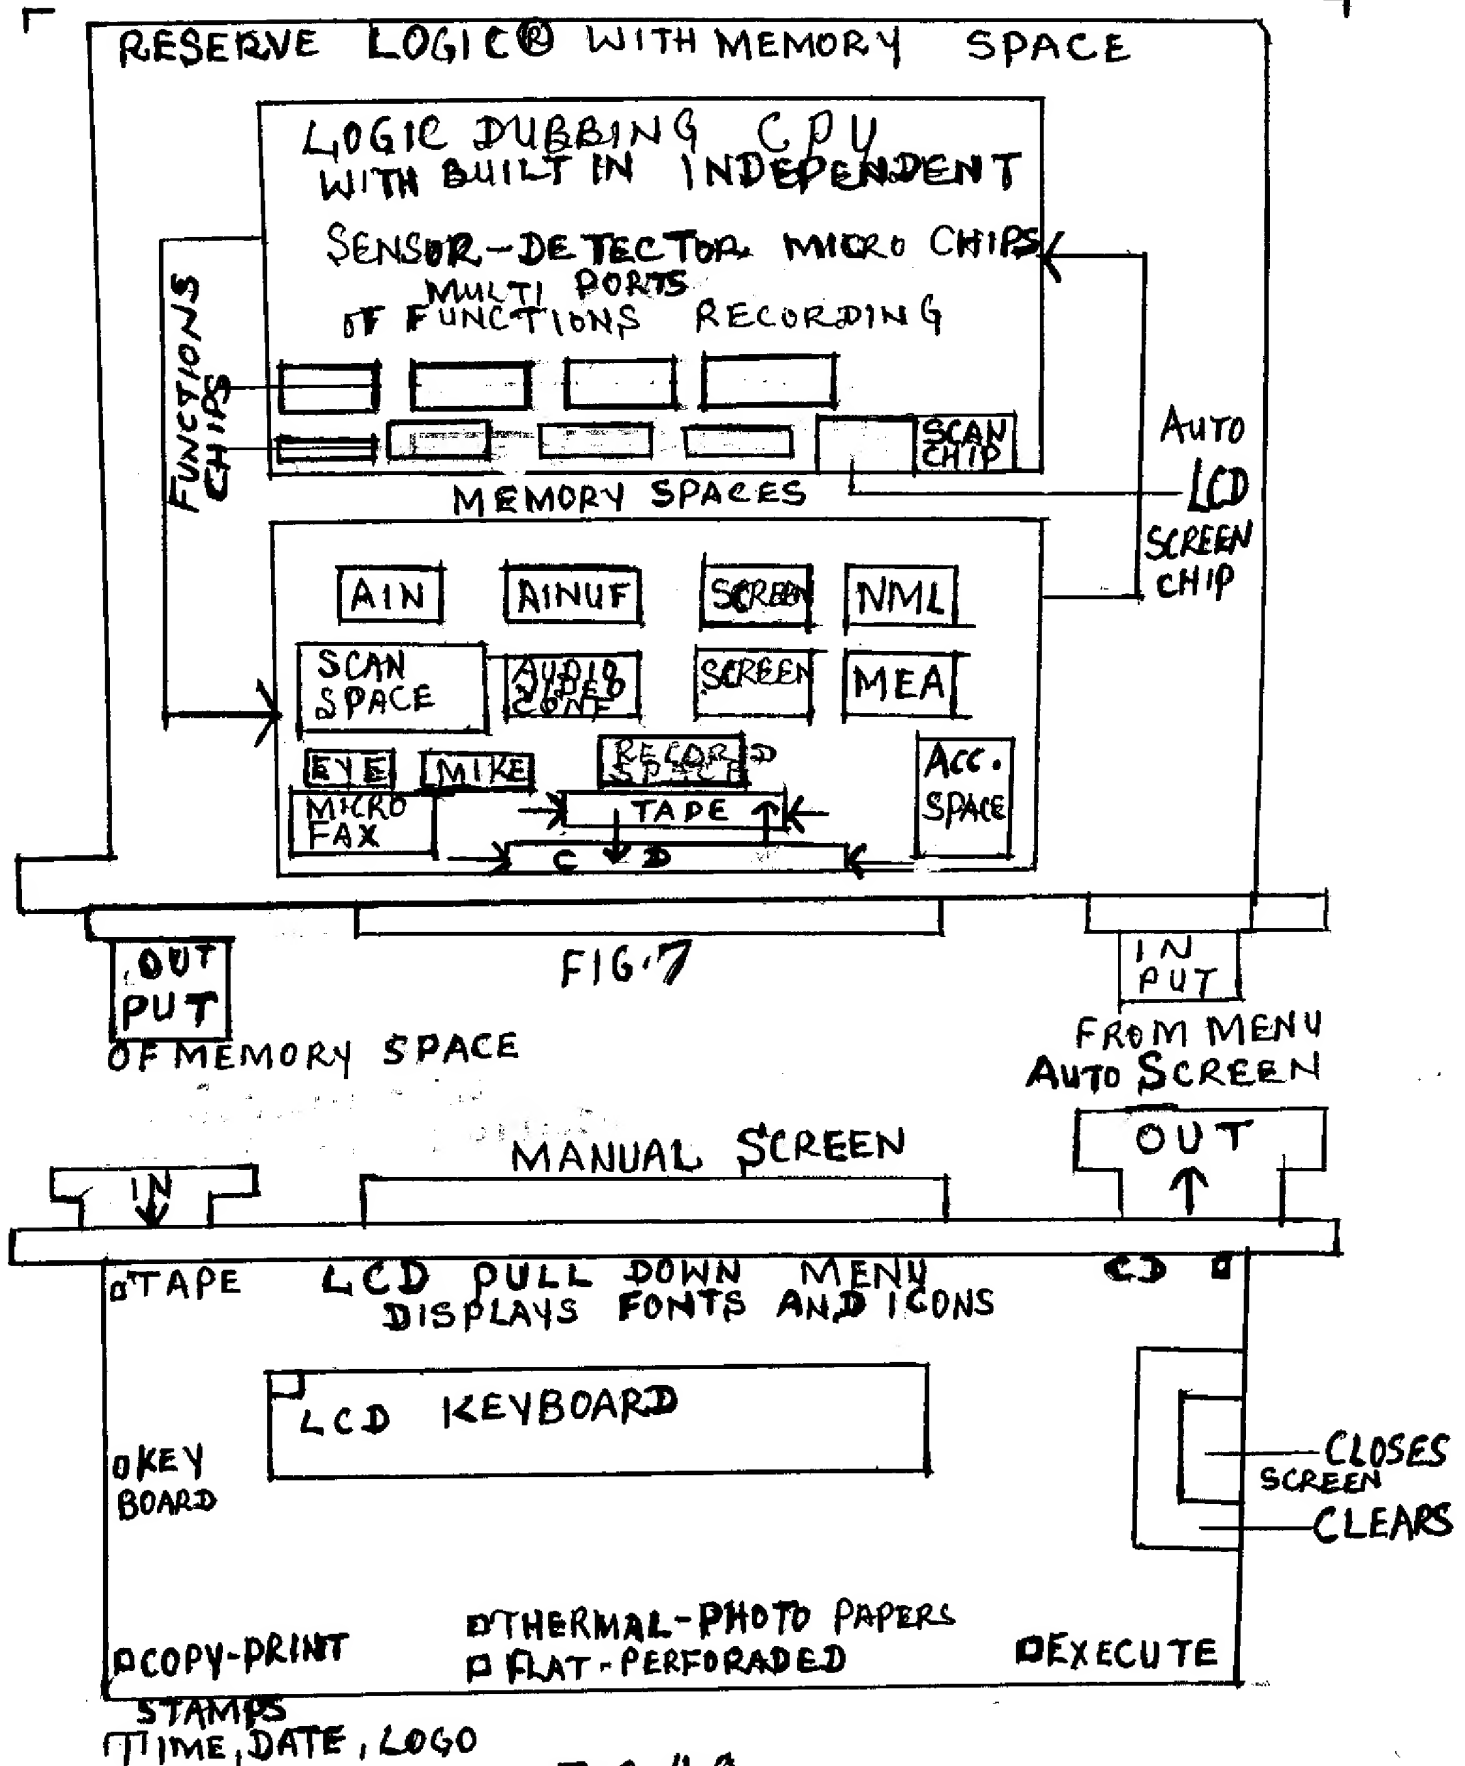 RESERVE LOGIC® WITH MEMORY SPACE
LOGIC DUBBING CPU
WITH BUILT IN INDEPENDENT
SENSOR-DETECTOR MICRO CHIPS
MULTI PORTS
OF FUNCTIONS RECORDING
FUNCTIONS
CHIPS
SCAN
CHIP
AUTO
LCD
SCREEN
CHIP
MEMORY SPACES
AIN
AINUF
SCREEN
NML
SCAN
SPACE
AUDIO
VIDEO
CONF
SCREEN
MEA
EYE
MIKE
RECORD
SPACE
ACC.
SPACE
MICRO
FAX
TAPE
CD
OUT
PUT
OF MEMORY SPACE
FIG.7
IN
PUT
FROM MENU
AUTO SCREEN
MANUAL SCREEN
OUT
IN
TAPE
LCD PULL DOWN MENU
DISPLAYS FONTS AND ICONS
CD
LCD KEYBOARD
KEY
BOARD
CLOSES
SCREEN
CLEARS
THERMAL-PHOTO PAPERS
FLAT-PERFORADED
COPY-PRINT
EXECUTE
STAMPS
TIME, DATE, LOGO